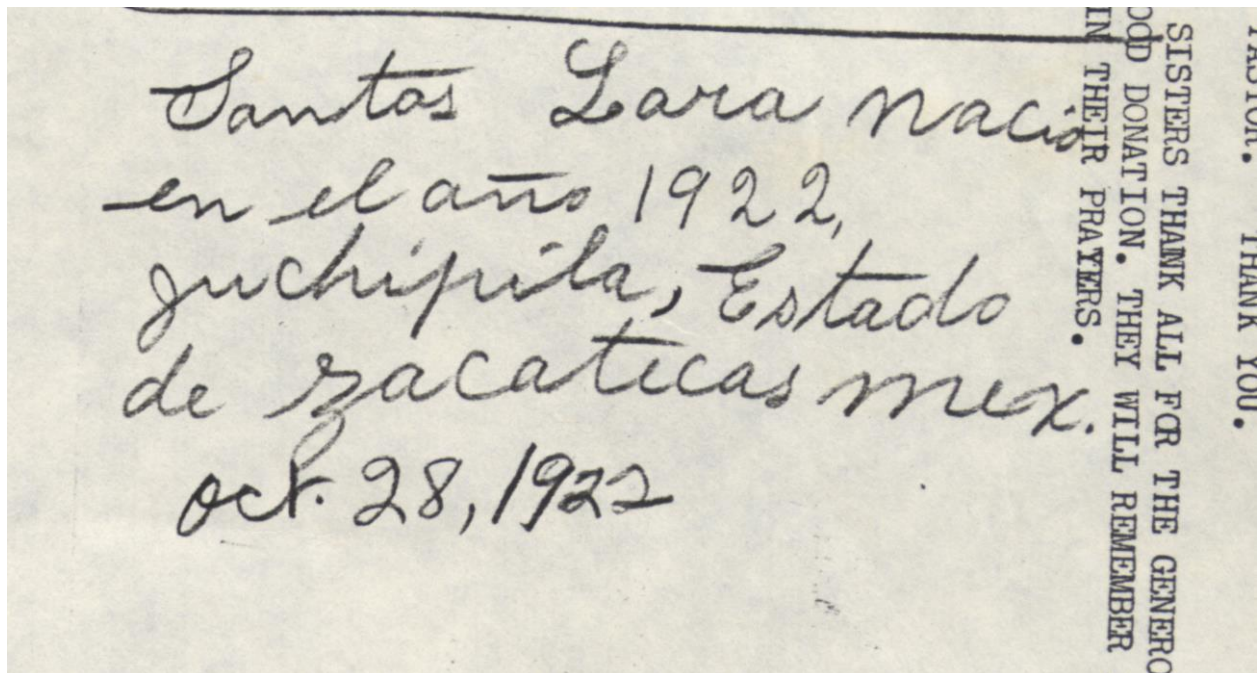 Santos Lara nació
en el año 1922,
juchipila, Estado
de zacatecas mex.
oct. 28, 1922
PASTOR. THANK YOU.
SISTERS THANK ALL FOR THE GENERO
OOD DONATION. THEY WILL REMEMBER
IN THEIR PRAYERS.